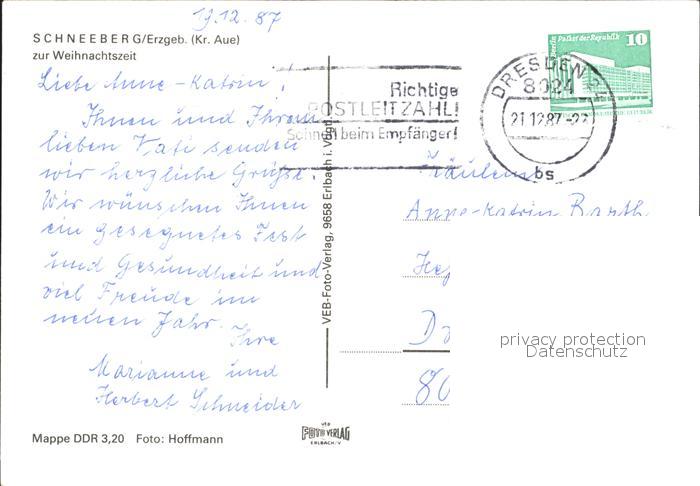 19.12.87
SCHNEEBERG/Erzgeb. (Kr. Aue)
zur Weihnachtszeit
Liebe Anne-Katrin,
Ihnen und Ihrem
lieben Vati senden
wir herzliche Grüße.
Wir wünschen Ihnen
ein gesegnetes Fest
und Gesundheit und
viel Freude im
neuen Jahr.
Ihre
Marianne und
Herbert Schneider
Mappe DDR 3,20 Foto: Hoffmann
VEB-Foto-Verlag, 9658 Erlbach i. Vogtl.
veb
FOTO VERLAG
ERLBACH/V
Richtige
POSTLEITZAHL!
Schnell beim Empfänger!
DRESDEN
8024
21.12.87-22
bs
Berlin Palast der Republik 10
Fräulein
Anne-Katrin Barth
80
privacy protection
Datenschutz